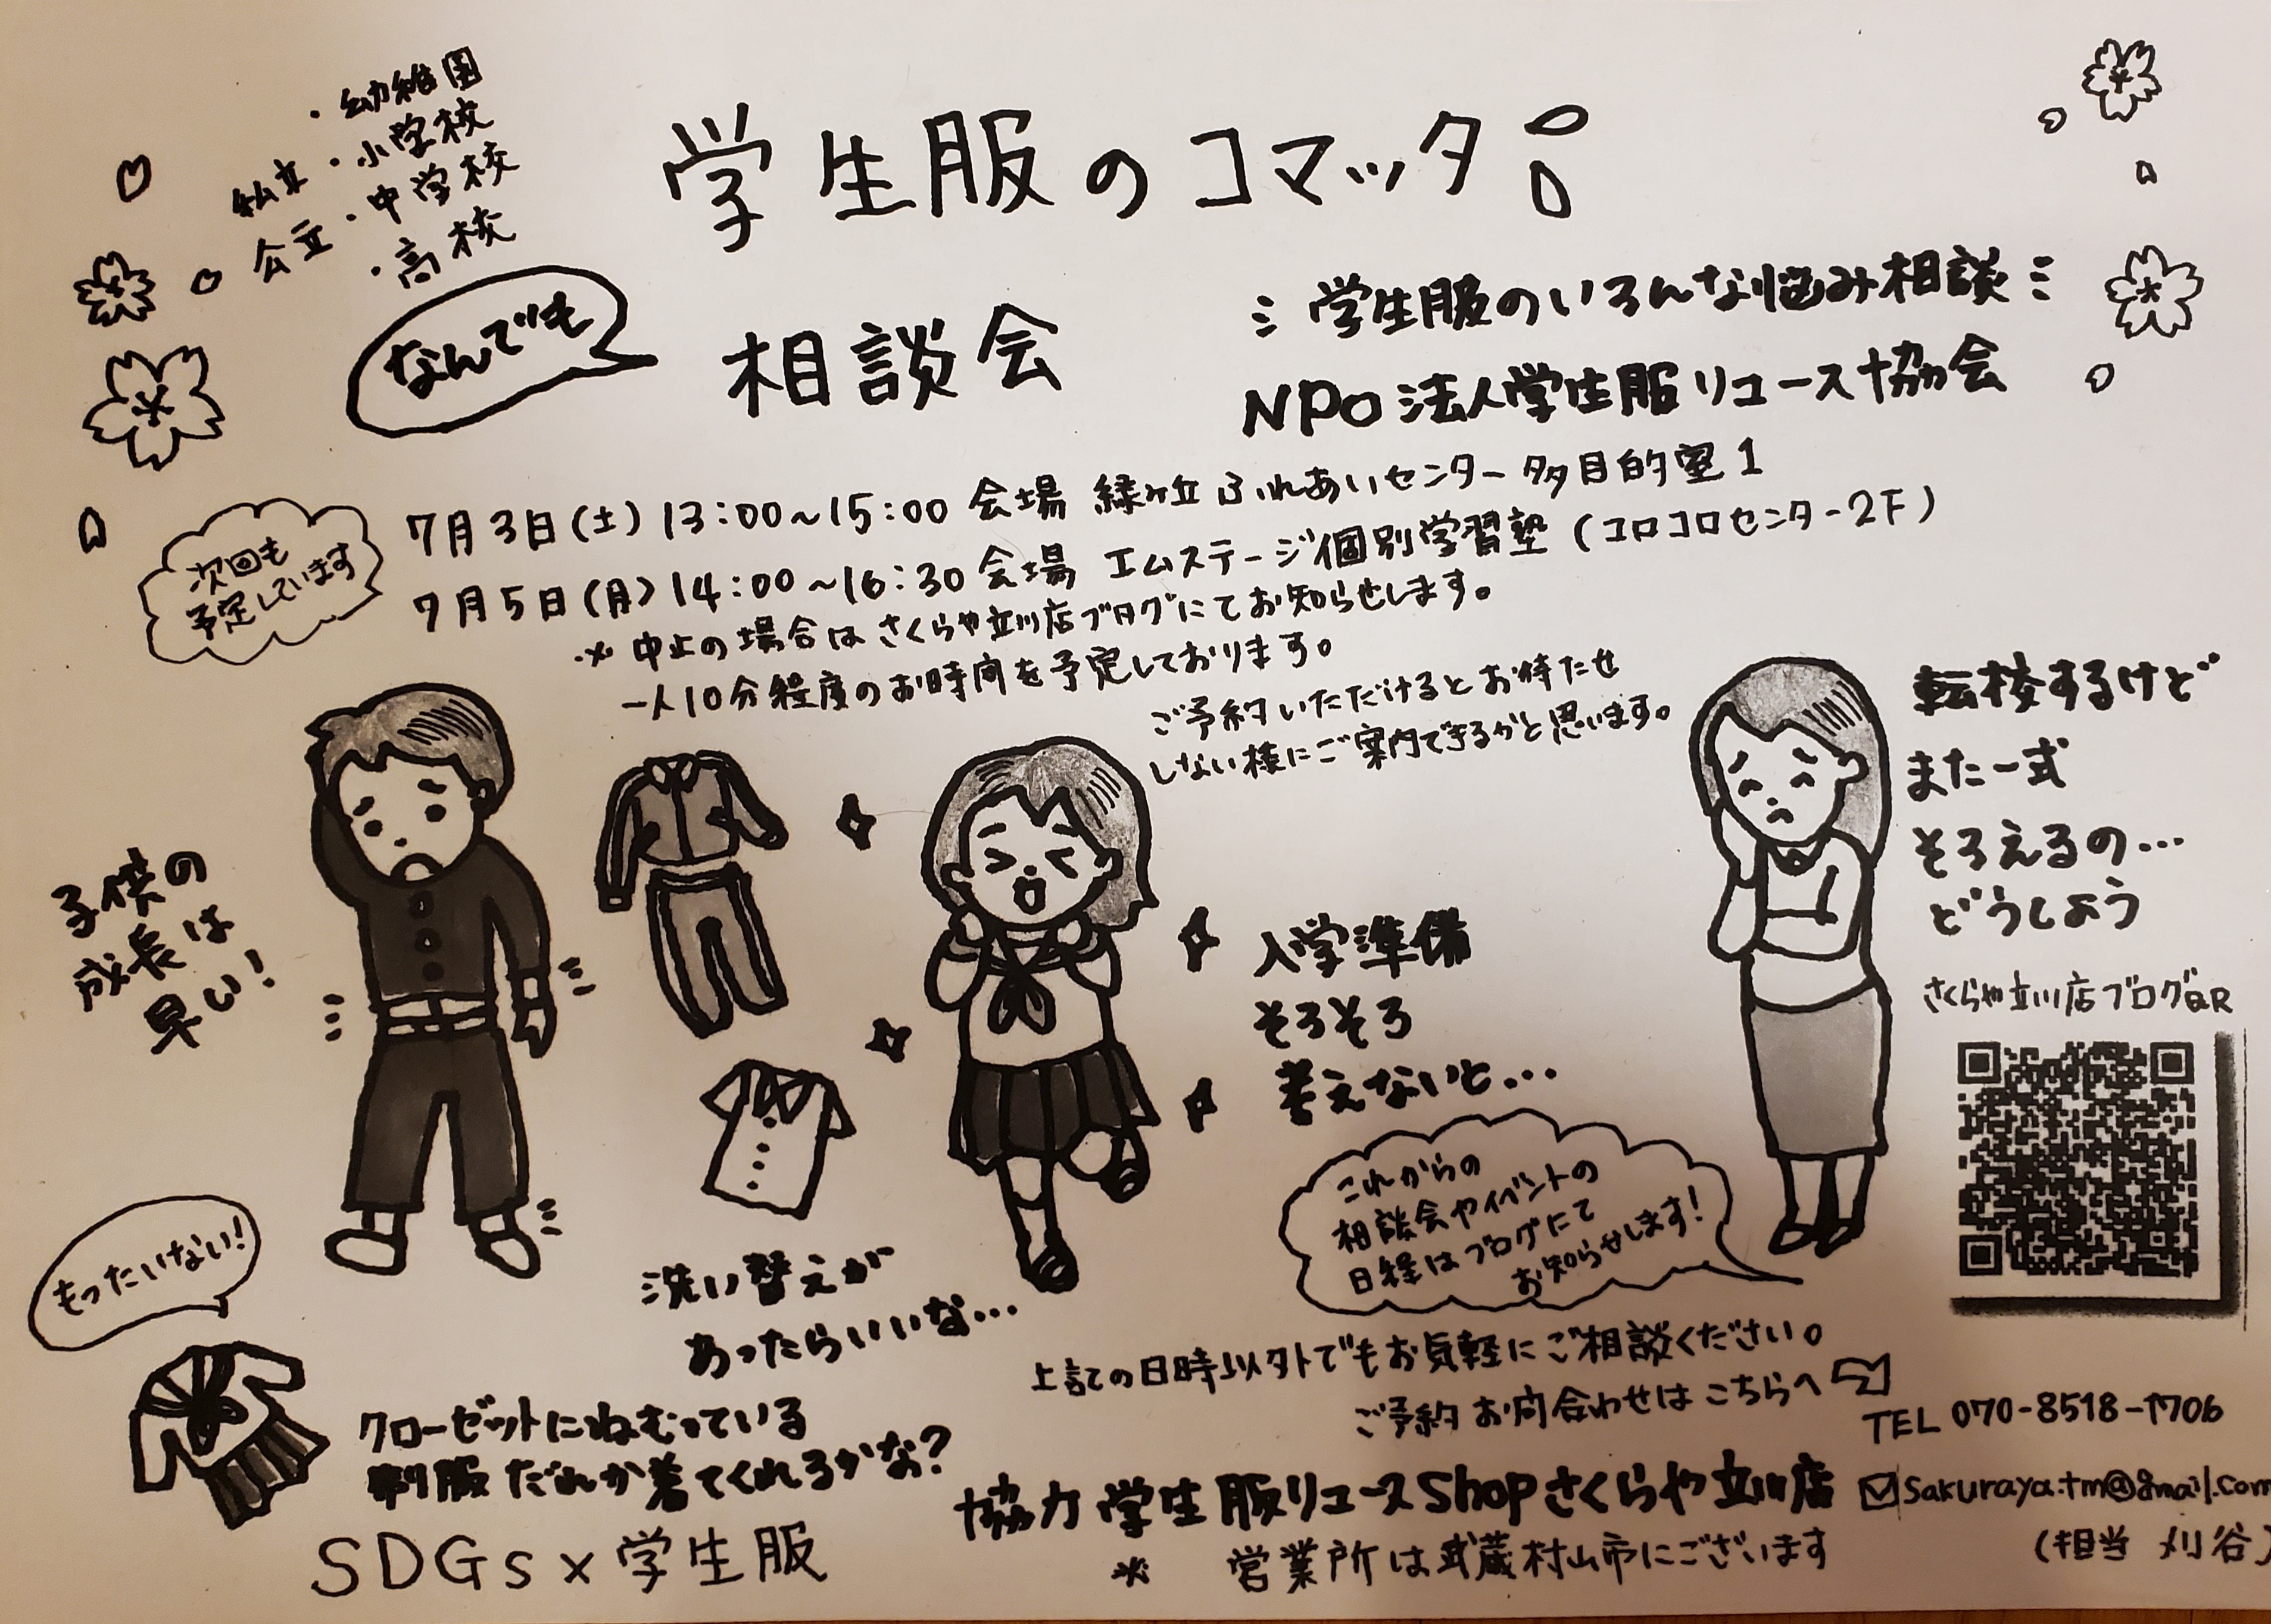 ・幼稚園
私立・小学校
公立・中学校
・高校
学生服のコマッタ!
なんでも
相談会
学生服のいろんな悩み相談
NPO法人学生服リユース協会
次回も
予定しています
7月3日(土)13:00~15:00 会場 緑ヶ丘 ふれあいセンター 多目的室1
7月5日(月)14:00~16:30 会場 エムステージ個別学習塾(コロコロセンター2F)
※ 中止の場合は さくらや立川店ブログにてお知らせします。
一人10分程度のお時間を予定しております。
ご予約いただけるとお待たせ
しない様にご案内できるかと思います。
子供の
成長は
早い!
転校するけど
また一式
そろえるの…
どうしよう
入学準備
そろそろ
考えないと…
さくらや立川店ブログQR
これからの
相談会やイベントの
日程はブログにて
お知らせします!
もったいない!
洗い替えが
あったらいいな…
クローゼットにねむっている
制服 だれか着てくれるかな?
SDGs×学生服
上記の日時以外でもお気軽にご相談ください。
ご予約 お問合わせは こちらへ
TEL 070-8518-1706
協力 学生服リユースShopさくらや立川店
sakuraya.tm@gmail.com
※ 営業所は武蔵村山市にございます
(担当 刈谷)